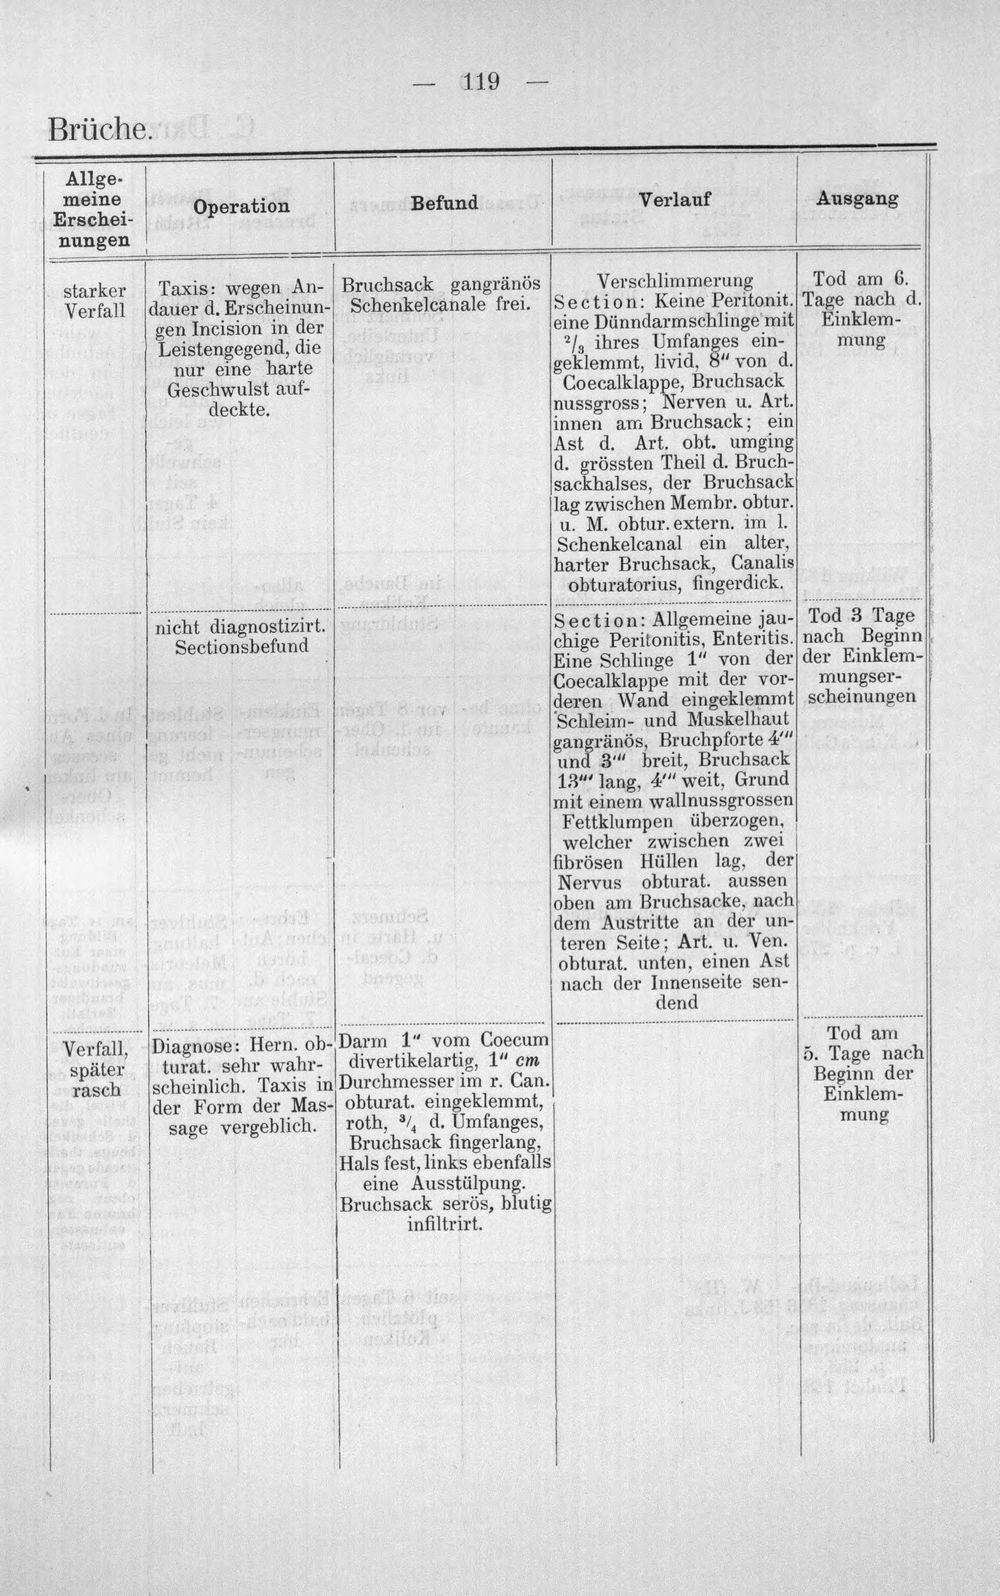 — 119 —
Brüche.
Allge-
meine
Erschei-
nungen
Operation
Befund
Verlauf
Ausgang
starker
Verfall
Taxis: wegen An-
dauer d. Erscheinun-
gen Incision in der
Leistengegend, die
nur eine harte
Geschwulst auf-
deckte.
Bruchsack gangränös
Schenkelcanale frei.
Verschlimmerung
Section: Keine Peritonit.
eine Dünndarmschlinge mit
²/₃ ihres Umfanges ein-
geklemmt, livid, 8" von d.
Coecalklappe, Bruchsack
nussgross; Nerven u. Art.
innen am Bruchsack; ein
Ast d. Art. obt. umging
d. grössten Theil d. Bruch-
sackhalses, der Bruchsack
lag zwischen Membr. obtur.
u. M. obtur. extern. im l.
Schenkelcanal ein alter,
harter Bruchsack, Canalis
obturatorius, fingerdick.
Tod am 6.
Tage nach d.
Einklem-
mung
nicht diagnostizirt.
Sectionsbefund
Section: Allgemeine jau-
chige Peritonitis, Enteritis.
Eine Schlinge 1" von der
Coecalklappe mit der vor-
deren Wand eingeklemmt
Schleim- und Muskelhaut
gangränös, Bruchpforte 4'''
und 3''' breit, Bruchsack
13''' lang, 4''' weit, Grund
mit einem wallnussgrossen
Fettklumpen überzogen,
welcher zwischen zwei
fibrösen Hüllen lag, der
Nervus obturat. aussen
oben am Bruchsacke, nach
dem Austritte an der un-
teren Seite; Art. u. Ven.
obturat. unten, einen Ast
nach der Innenseite sen-
dend
Tod 3 Tage
nach Beginn
der Einklem-
mungser-
scheinungen
Verfall,
später
rasch
Diagnose: Hern. ob-
turat. sehr wahr-
scheinlich. Taxis in
der Form der Mas-
sage vergeblich.
Darm 1" vom Coecum
divertikelartig, 1" cm
Durchmesser im r. Can.
obturat. eingeklemmt,
roth, ³/₄ d. Umfanges,
Bruchsack fingerlang,
Hals fest, links ebenfalls
eine Ausstülpung.
Bruchsack serös, blutig
infiltrirt.
Tod am
5. Tage nach
Beginn der
Einklem-
mung